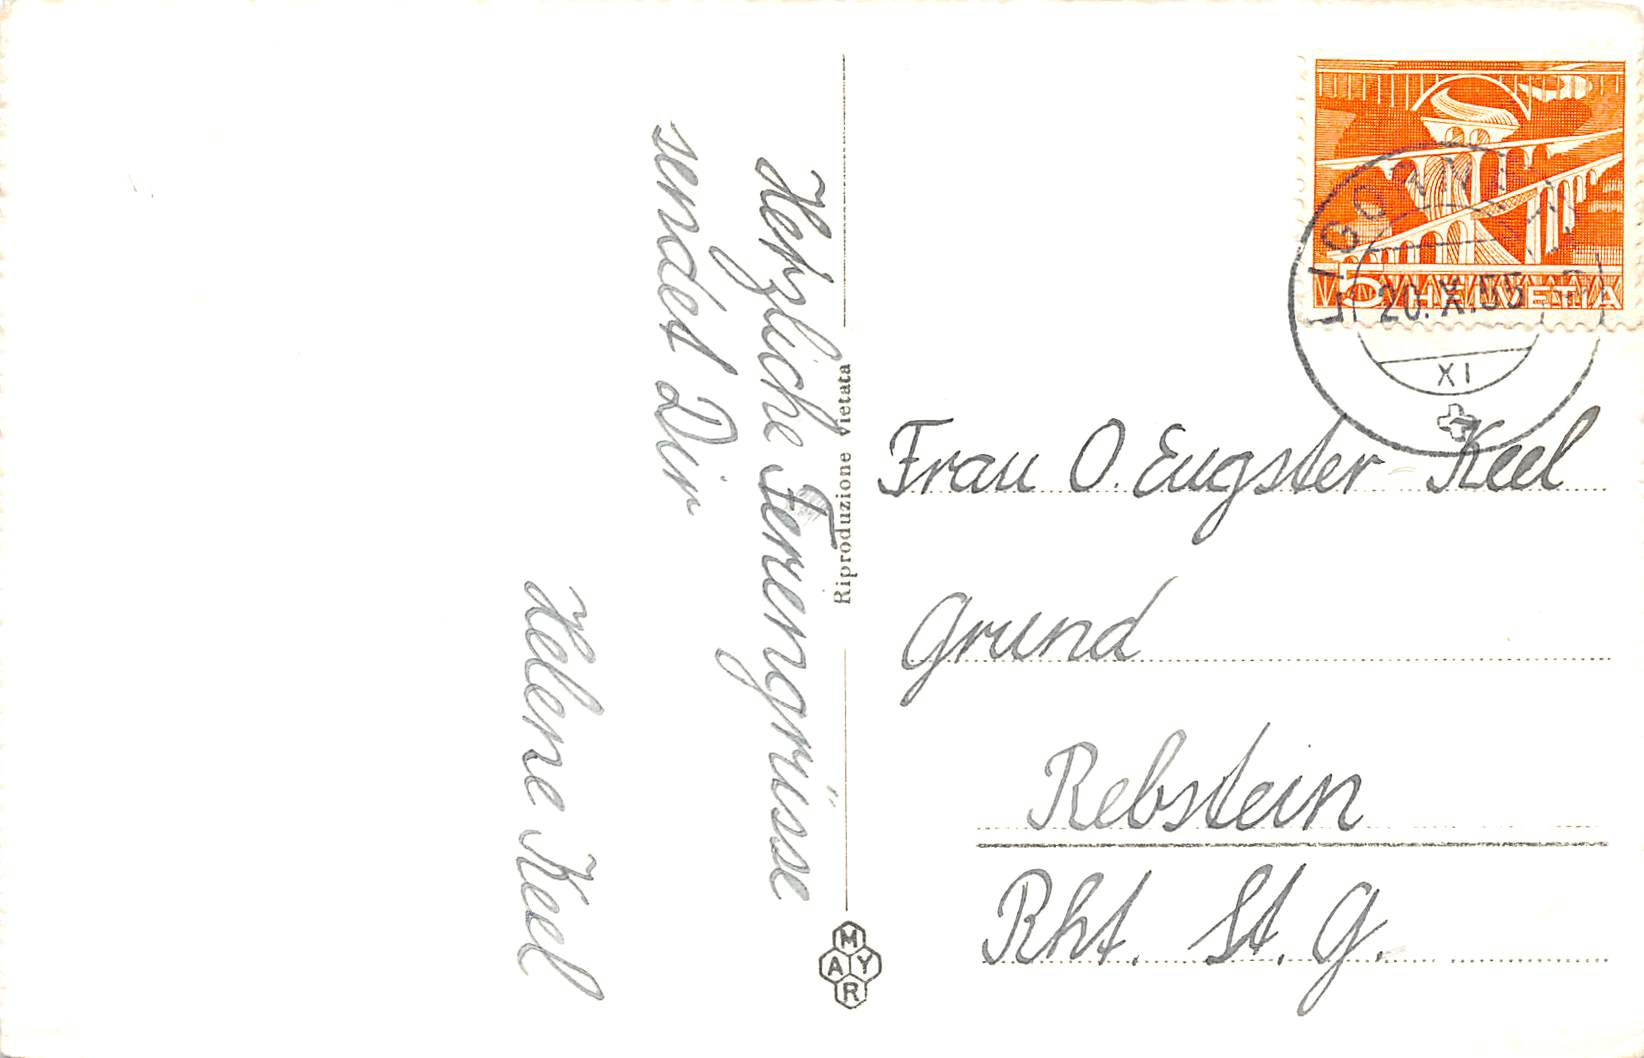 Herzliche Feriengrüsse
sendet Dir
Helene Keel
Riproduzione vietata
MAYR
5 HELVETIA
20.X.55
XI
Frau O. Eugster-Keel
Grund
Rebstein
Rht. St. G.